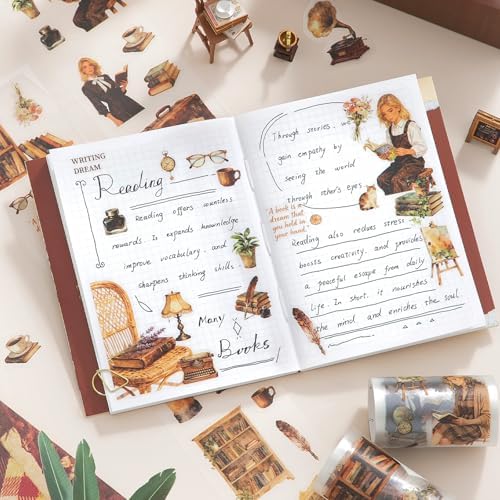 WRITING
DREAM
Reading
Reading offers countless
rewards. It expands knowledge
improve vocabulary. and
sharpens thinking skills.
Many
Books
Through stories. we
gain empathy by
seeing the world
through other's eyes.
"A book is a
dream that
you hold in
your hand."
Reading also reduces stress
boosts creativity. and provides
a peaceful escape from daily
life. In short. it nourishes
the mind and enriches the soul.